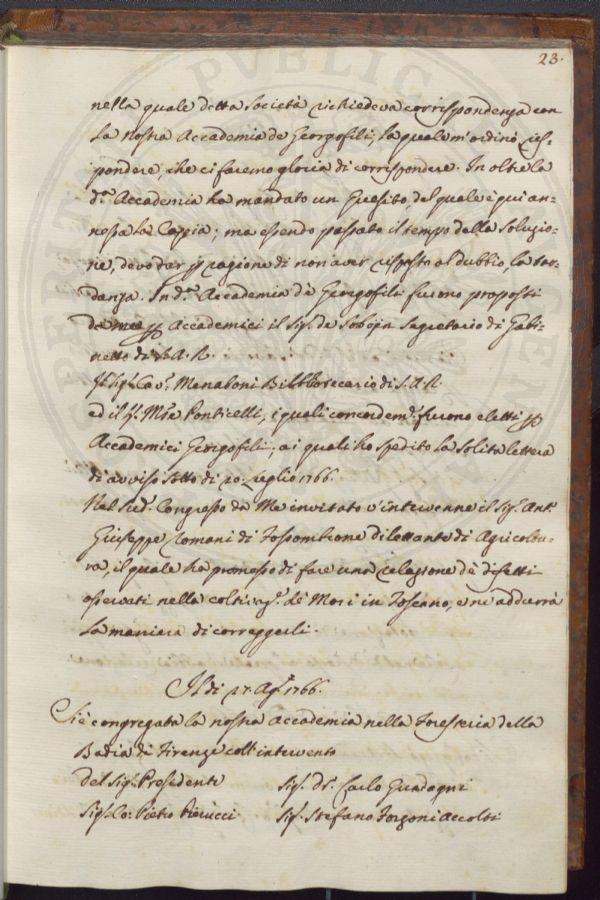 23.
nella quale detta Società richiedeva corrispondenza con
la nostra Accademia de Georgofili, la quale m'ordinò ris-
pondere, che ci faremo gloria di corrispondere. In oltre la
d.ª Accademia ha mandato un Quesito, del quale è qui an=
nessa la Coppia; ma essendo passato il tempo della soluzio=
ne, devo dar p ragione di non aver risposto al dubbio, la tar=
danza. In d.ª Accademia de Georgofili furono proposti
da me p Accademici il Sig.r de Sobojn Segretario di Gabi=
netto di S. A. R.
Sig.r Cav.r Menaboni Bibbliotecario di S. A. R.
ed il S. M.re Ponticelli, i quali concordem.te furono eletti p
Accademici Georgofili, ai quali ho spedito la solita lettera
di avviso sotto di 20. Luglio 1766.
Nel sud.º Congresso da Me invitato v'intervenne il Sig.r Ant.º
Giuseppe Romani di Fossombrone dilettante di Agricoltu=
ra, il quale ha promesso di fare una relazione de difetti
osservati nella coltivaz.e de Mori in Toscana, e ne addurrà
la maniera di correggerli.
Il dì 27. Ag.to 1766.
Si è congregata la nostra Accademia nella Foresteria della
Badia di Firenze coll'intervento
del Sig.r Presidente Sig.r D.r Carlo Guadagni
Sig.r Co: Pietro Pierucci Sig.r Stefano Forzoni Accolti